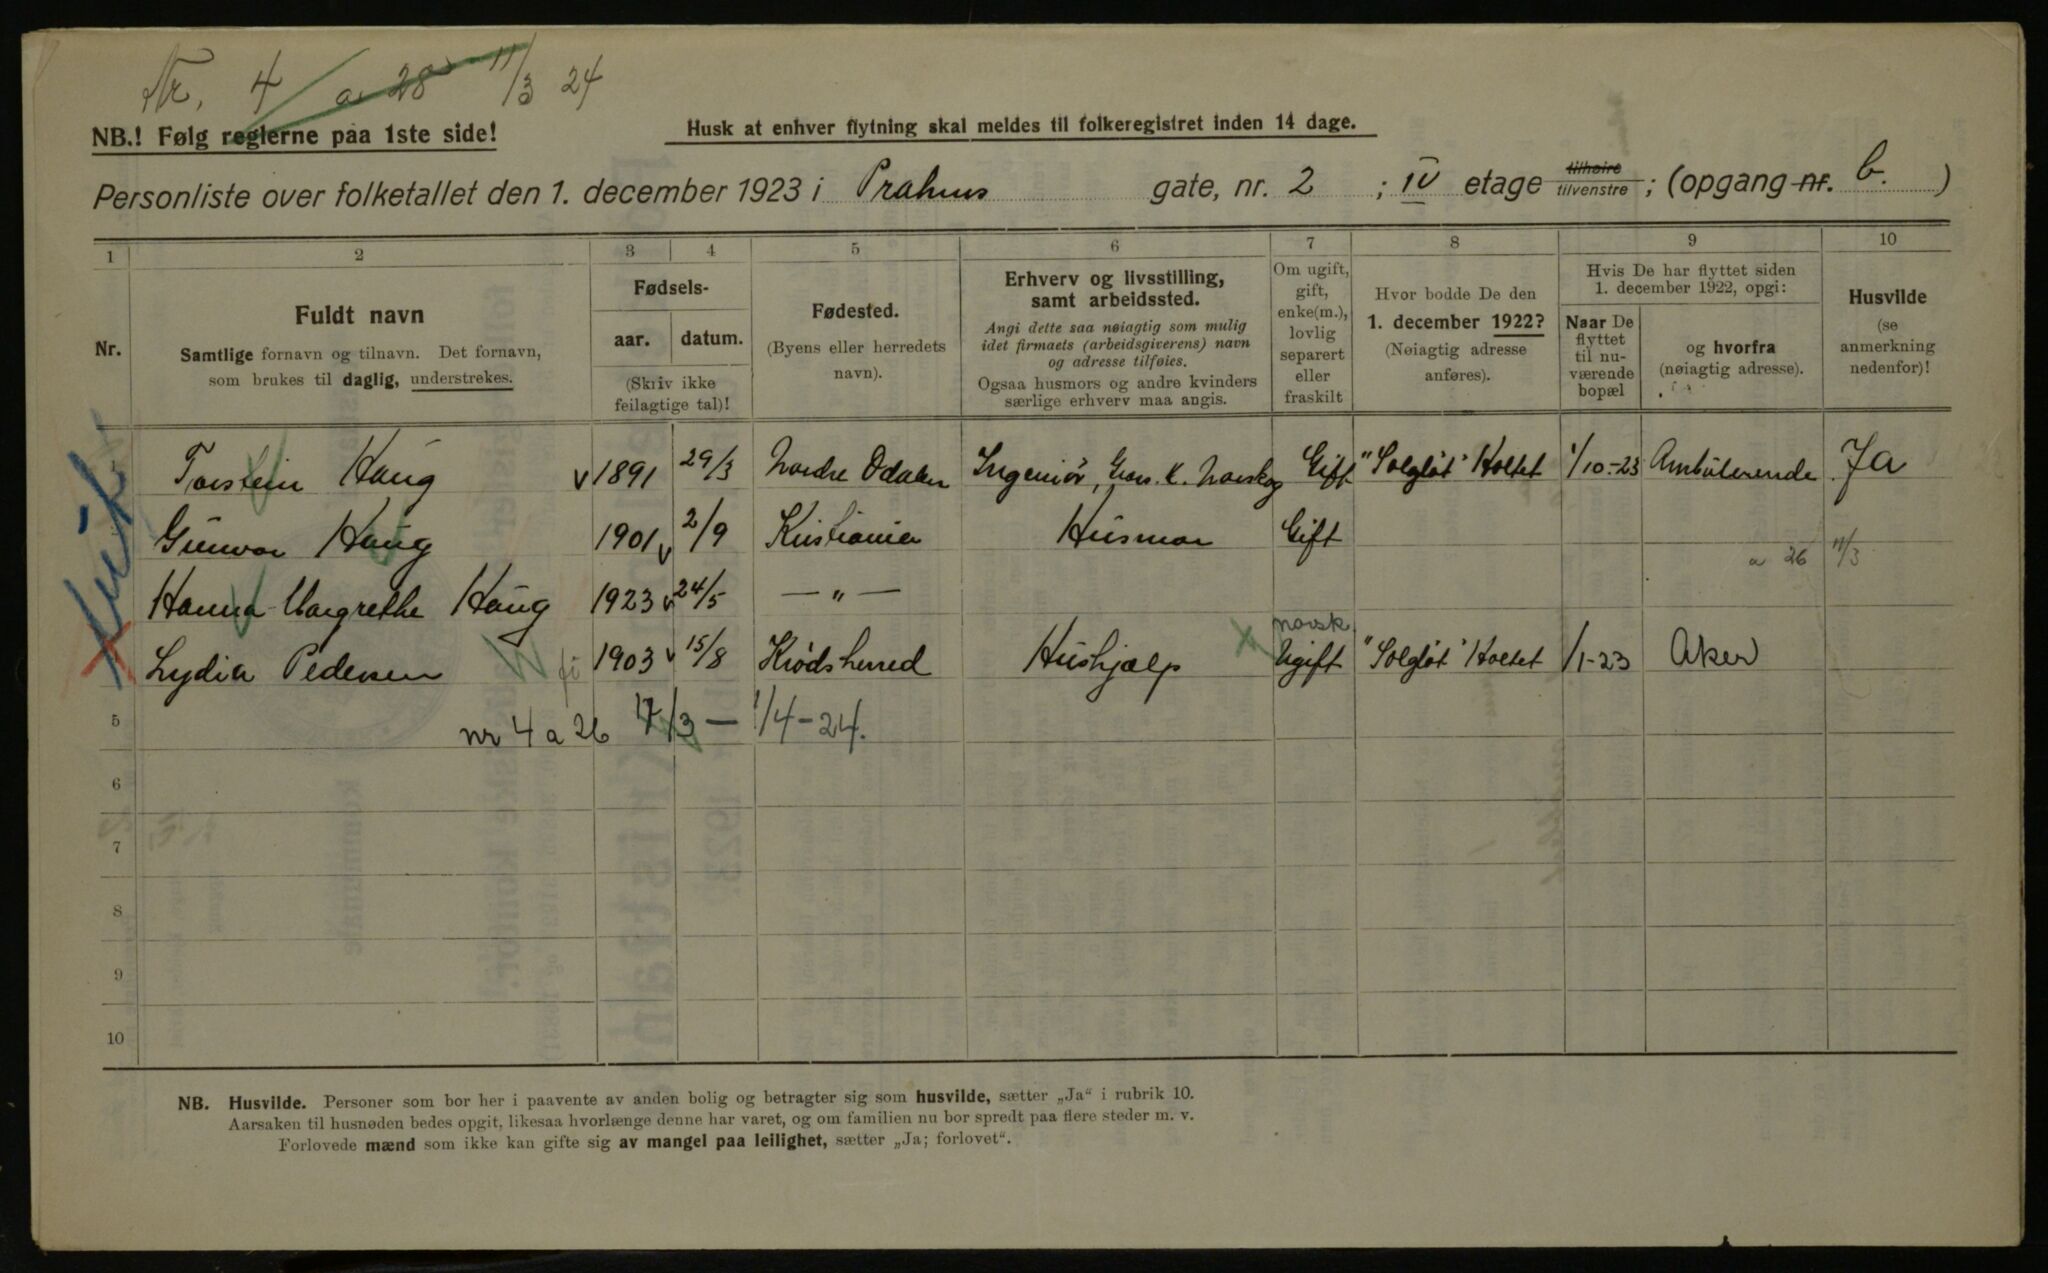 Nr. 4 a 28 11/3 24
NB.! Følg reglerne paa 1ste side!
Husk at enhver flytning skal meldes til folkeregistret inden 14 dage.
Personliste over folketallet den 1. december 1923 i Prahms gate, nr. 2 ; IV etage tilhøire tilvenstre ; (opgang nr. b. )
1 2 3 4 5 6 7 8 9 10
Nr.
Fuldt navn
Samtlige fornavn og tilnavn. Det fornavn,
som brukes til daglig, understrekes.
Fødsels-
aar. datum.
(Skriv ikke
feilagtige tal)!
Fødested.
(Byens eller herredets
navn).
Erhverv og livsstilling,
samt arbeidssted.
Angi dette saa nøiagtig som mulig
idet firmaets (arbeidsgiverens) navn
og adresse tilføies.
Ogsaa husmors og andre kvinders
særlige erhverv maa angis.
Om ugift,
gift,
enke(m.),
lovlig
separert
eller
fraskilt
Hvor bodde De den
1. december 1922?
(Nøiagtig adresse
anføres).
Hvis De har flyttet siden
1. december 1922, opgi:
Naar De
flyttet
til nu-
værende
bopæl
og hvorfra
(nøiagtig adresse).
Husvilde
(se
anmerkning
nedenfor)!
Torstein Haug 1891 29/3 Nordre Odalen Ingeniør, K. Norskog Gift "Solgløt" Holtet 1/10-23 Ambulerende Ja
Gunvor Haug 1901 2/9 Kristiania Husmor Gift
a 26 11/3
Hanna Margrethe Haug 1923 24/5 — " —
norsk
Lydia Pedersen 1903 15/8 Krødsherred Hushjælp Ugift "Solgløt" Holtet 1/1-23 Aker
5 nr 4 a 26 17/3 — 1/4-24.
6
7
8
9
10
NB. Husvilde. Personer som bor her i paavente av anden bolig og betragter sig som husvilde, sætter „Ja“ i rubrik 10.
Aarsaken til husnøden bedes opgit, likesaa hvorlænge denne har varet, og om familien nu bor spredt paa flere steder m. v.
Forlovede mænd som ikke kan gifte sig av mangel paa leilighet, sætter „Ja; forlovet“.